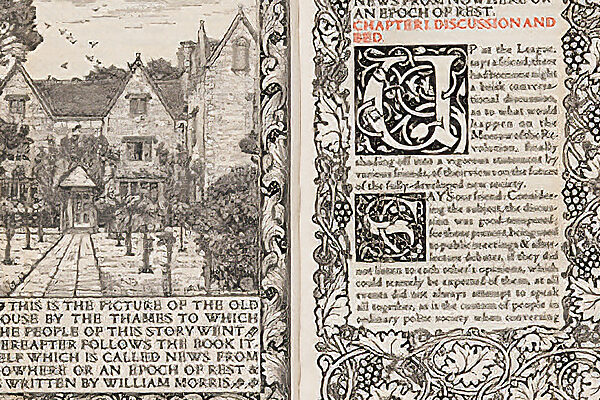 THIS IS THE PICTURE OF THE OLD
OUSE BY THE THAMES TO WHICH
HE PEOPLE OF THIS STORY WENT
EREAFTER FOLLOWS THE BOOK IT
ELF WHICH IS CALLED NEWS FROM
OWHERE OR AN EPOCH OF REST &
S WRITTEN BY WILLIAM MORRIS
NEWS FROM NOWHERE OR
AN EPOCH OF REST.
CHAPTER I. DISCUSSION AND
BED.
UP at the League,
says a friend, there
had been one night
a brisk conversa-
tional discussion,
as to what would
happen on the
Morrow of the Re-
volution, finally
shading off into a vigorous statement by
various friends, of their views on the future
of the fully-developed new society.
SAYS our friend: Consider-
ing the subject, the discus-
sion was good-tempered;
for those present, being used
to public meetings & after-
lecture debates, if they did
not listen to each other's opinions, which
could scarcely be expected of them, at all
events did not always attempt to speak
all together, as is the custom of people in
ordinary polite society when conversing